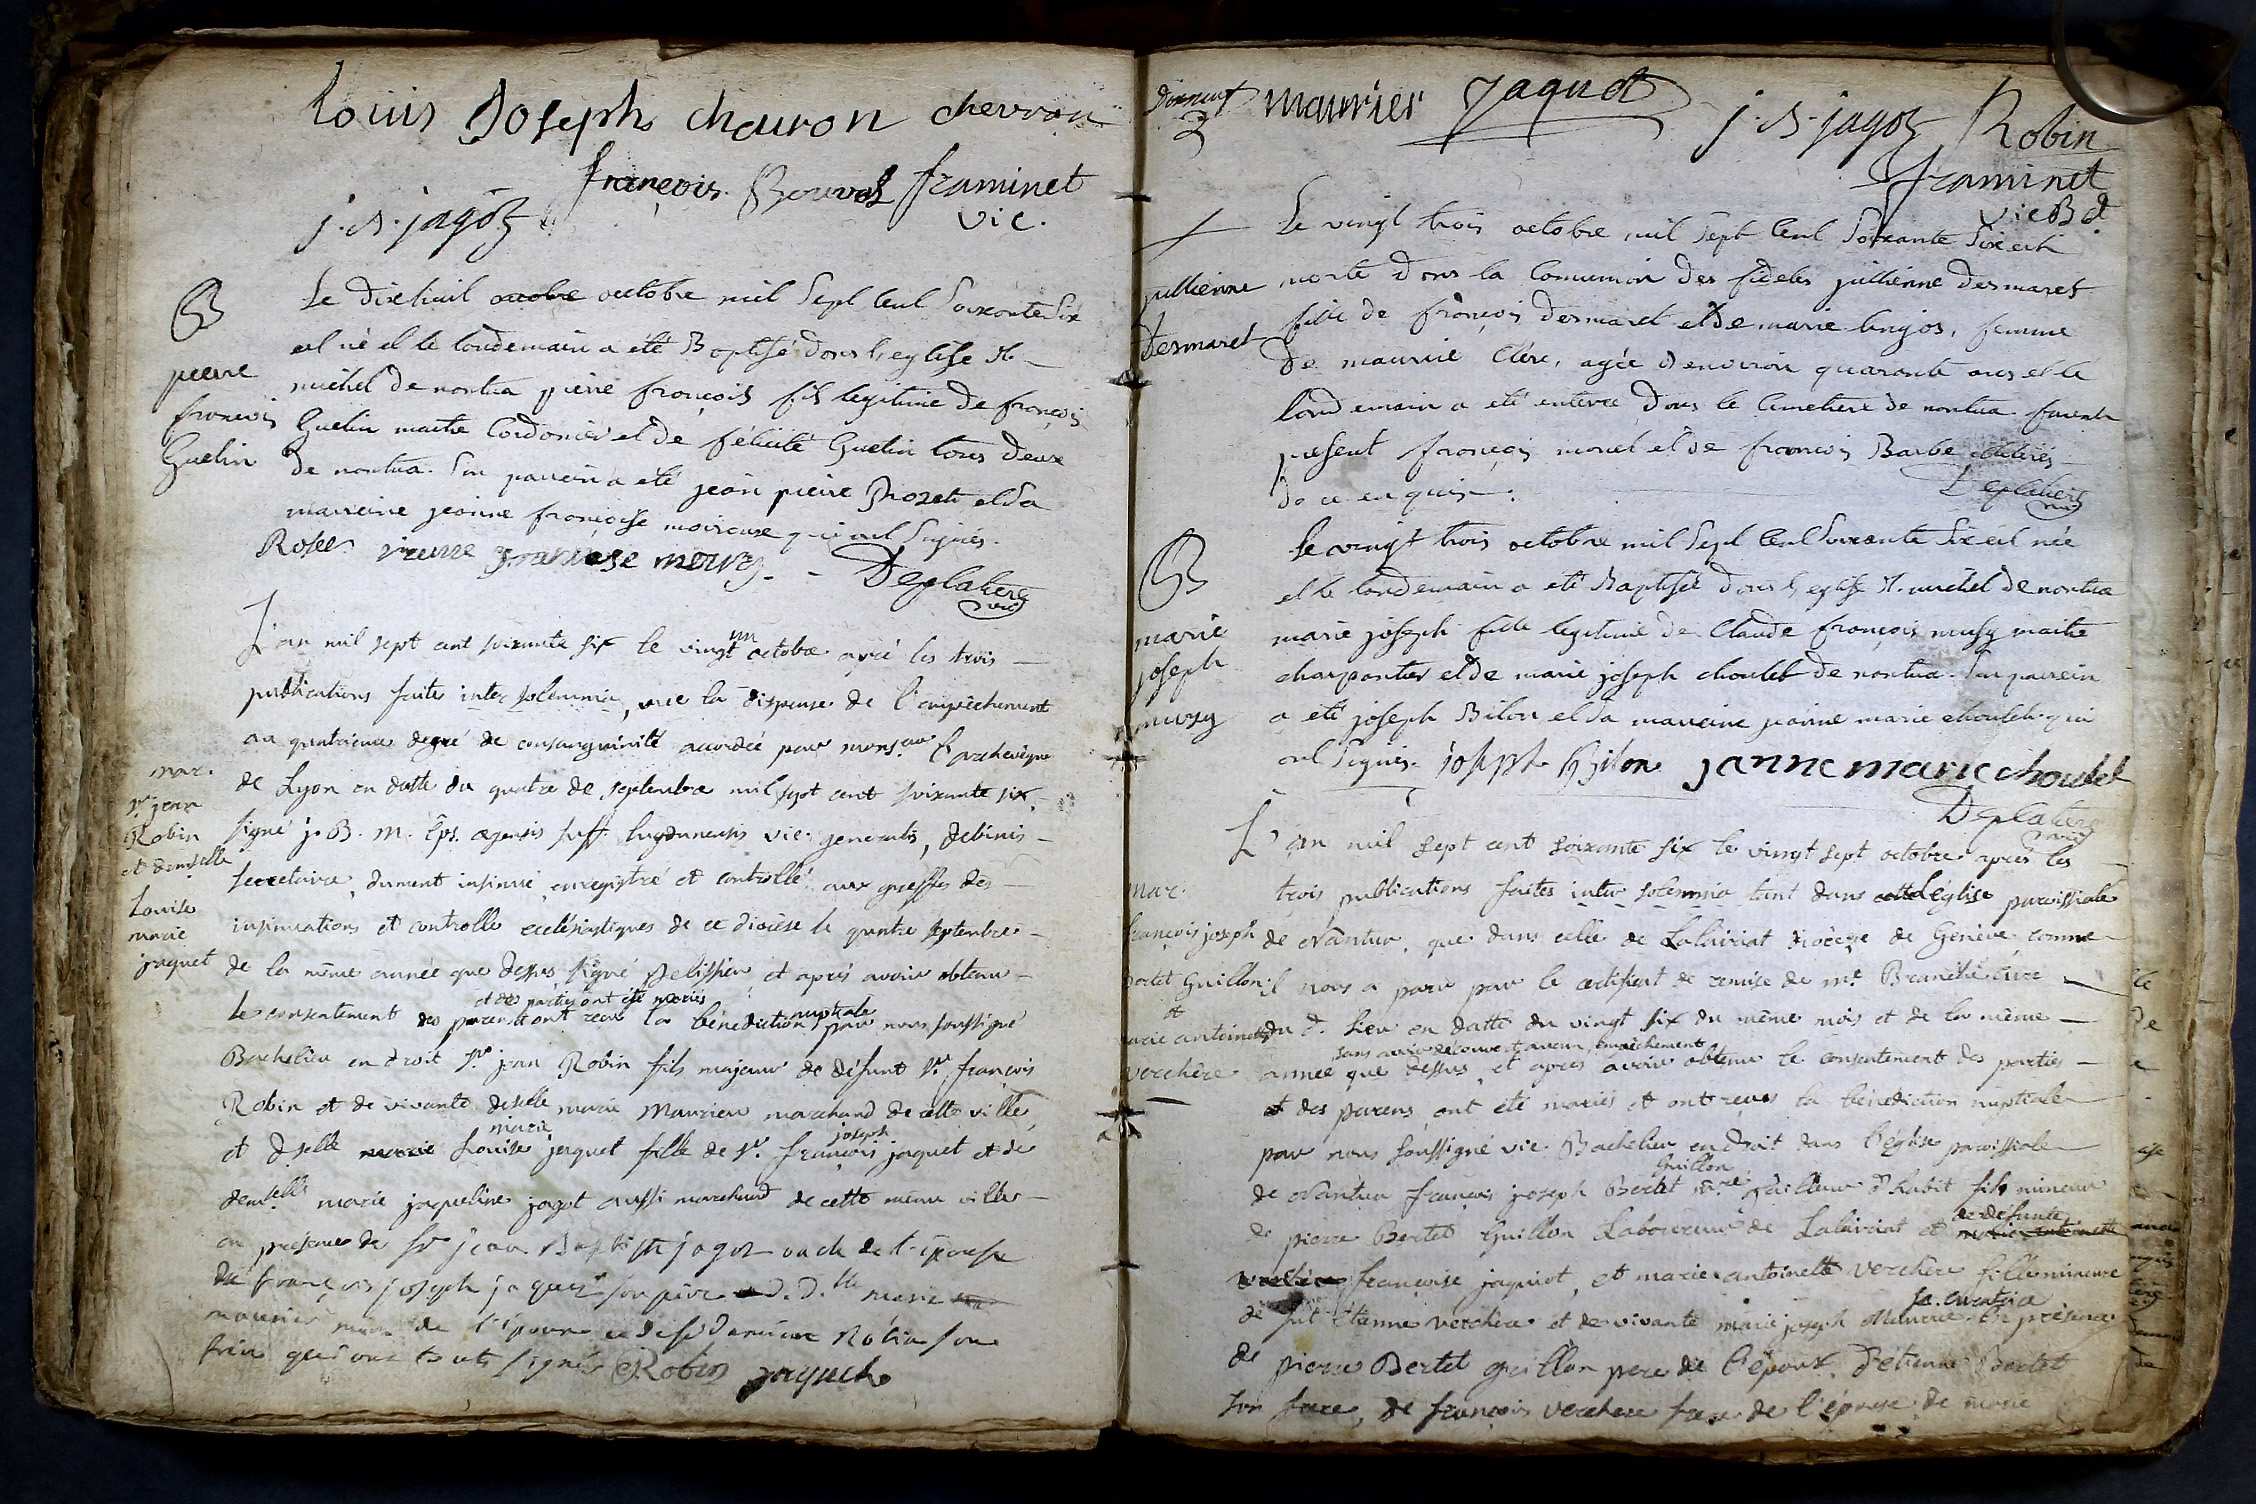 Louis Joseph chauron chevron
françois Bouvet framinet
vic.
j. b. jagot
B
pierre
françois
Guelin
Le dixhuit octobre octobre mil Sept Cent Soixante Six
est né et le londemain a été Baptisé dans l'eglise St.
michel de nantua pierre françois fils legitime de françois
Guelin maitre Cordonier et de félicité Guelin tous deux
de nantua. Son parrein a été jean pierre Rozet et Sa
marreine jeanne françoise qui ont Signés.
Rosel
Deplatiere
vic
mar.
sr. jean
Robin
et demselle
Louise
marie
jaquet
L'an mil sept cent soixante six le vingt un octobre après les trois
publications faites inter solemnia, avec la dispense de l'empêchement
au quatrieme degré de consanguinité accordée par monseur l'archevêque
de Lyon en datte du quatre de septembre mil sept cent soixante six,
signé j. B. m. Eps. egensis suff. lugdunensis vic. generalis,
secretaire, dument insinué enregistré et controllé aux greffes des
insinuations et controlle eclésiastiques de ce diocèse le quatre septembre
de la même année que dessus signé Pelissier, et après avoir obtenu
le consentement des parens et des parties ont été mariés et ont recu la bénediction nuptiale par nous soussigné
Bachelier en droit sr. jean Robin fils majeur de défunt sr. françois
Robin et de vivante deselle marie Maurier marchand de cette ville,
et dselle marie Louise marie jaquet fille de sr. françois joseph jaquet et de
demselle marie jaqueline jagot aussi marchand de cette même ville
en presence de sr jean Baptiste jagot oncle de l'épouse
de françois joseph jaquet son père de d.lle marie
maurier mère de l'époux et de Robin son
frère qui ont tous signés Robin jaquet
maurier Jaquet j. b. jagot Robin
framinet
vic B d.
jullienne
desmaret
Le vingt trois octobre mil Sept Cent Soixante Six est
morte dans la Comunion des fideles jullienne desmaret
fille de françois desmaret et de marie, femme
de maurice Clerc, agée d'environ quarante ans et le
londemain a été enterré dans le Cimetiere de nantua furent
present françois morel et de françois Barbe
de ce enquis.
Deplatiere
vic
B
marie
joseph
musy
Le vingt trois octobre mil Sept Cent Soixante Six est née
et le londemain a été Baptisée dans l'eglise St. michel de nantua
marie joseph fille legitime de Claude françois musy maitre
charpantier et de marie joseph choulet de nantua. Son parrein
a été joseph Bilon et Sa marreine jeanne marie choulet qui
ont Signés. joseph Bilon janne marie choulet
Deplatiere
vic
mar.
françois joseph
Bertet Guillon
et
marie antoinette
verchère
L'an mil sept cent soixante six le vingt sept octobre après les
trois publications faites inter solemnia tant dans cette l'église paroissiale
de Nantua, que dans celle de Lalairiat diocèse de Genève comme
il nous a paru par le certificat de remise de mr. Brunet curé
du d. lieu en datte du vingt six du même mois et de la même
année que dessus, sans avoir découvert aucun empêchement et apres avoir obtenu le consentement des parties
et des parens, ont été mariés et ont reçus la bénediction nuptiale
par nous soussigné vic. Bachelier en droit dans l'église paroissiale
de Nantua françois joseph Bertet Guillon m.re tailleur d'habit fils mineur
de pierre Bertet Guillon Laboureur de Lalairiat et de défunte marie antoinette
verchère françoise jaquiot, et marie antoinette verchère fille mineure
de fut Etienne verchère et de vivante marie joseph en présence
de pierre Bertet guillon pere de l'époux d'étienne Bertet
son frere, de françois verchere frere de l'épouse de marie